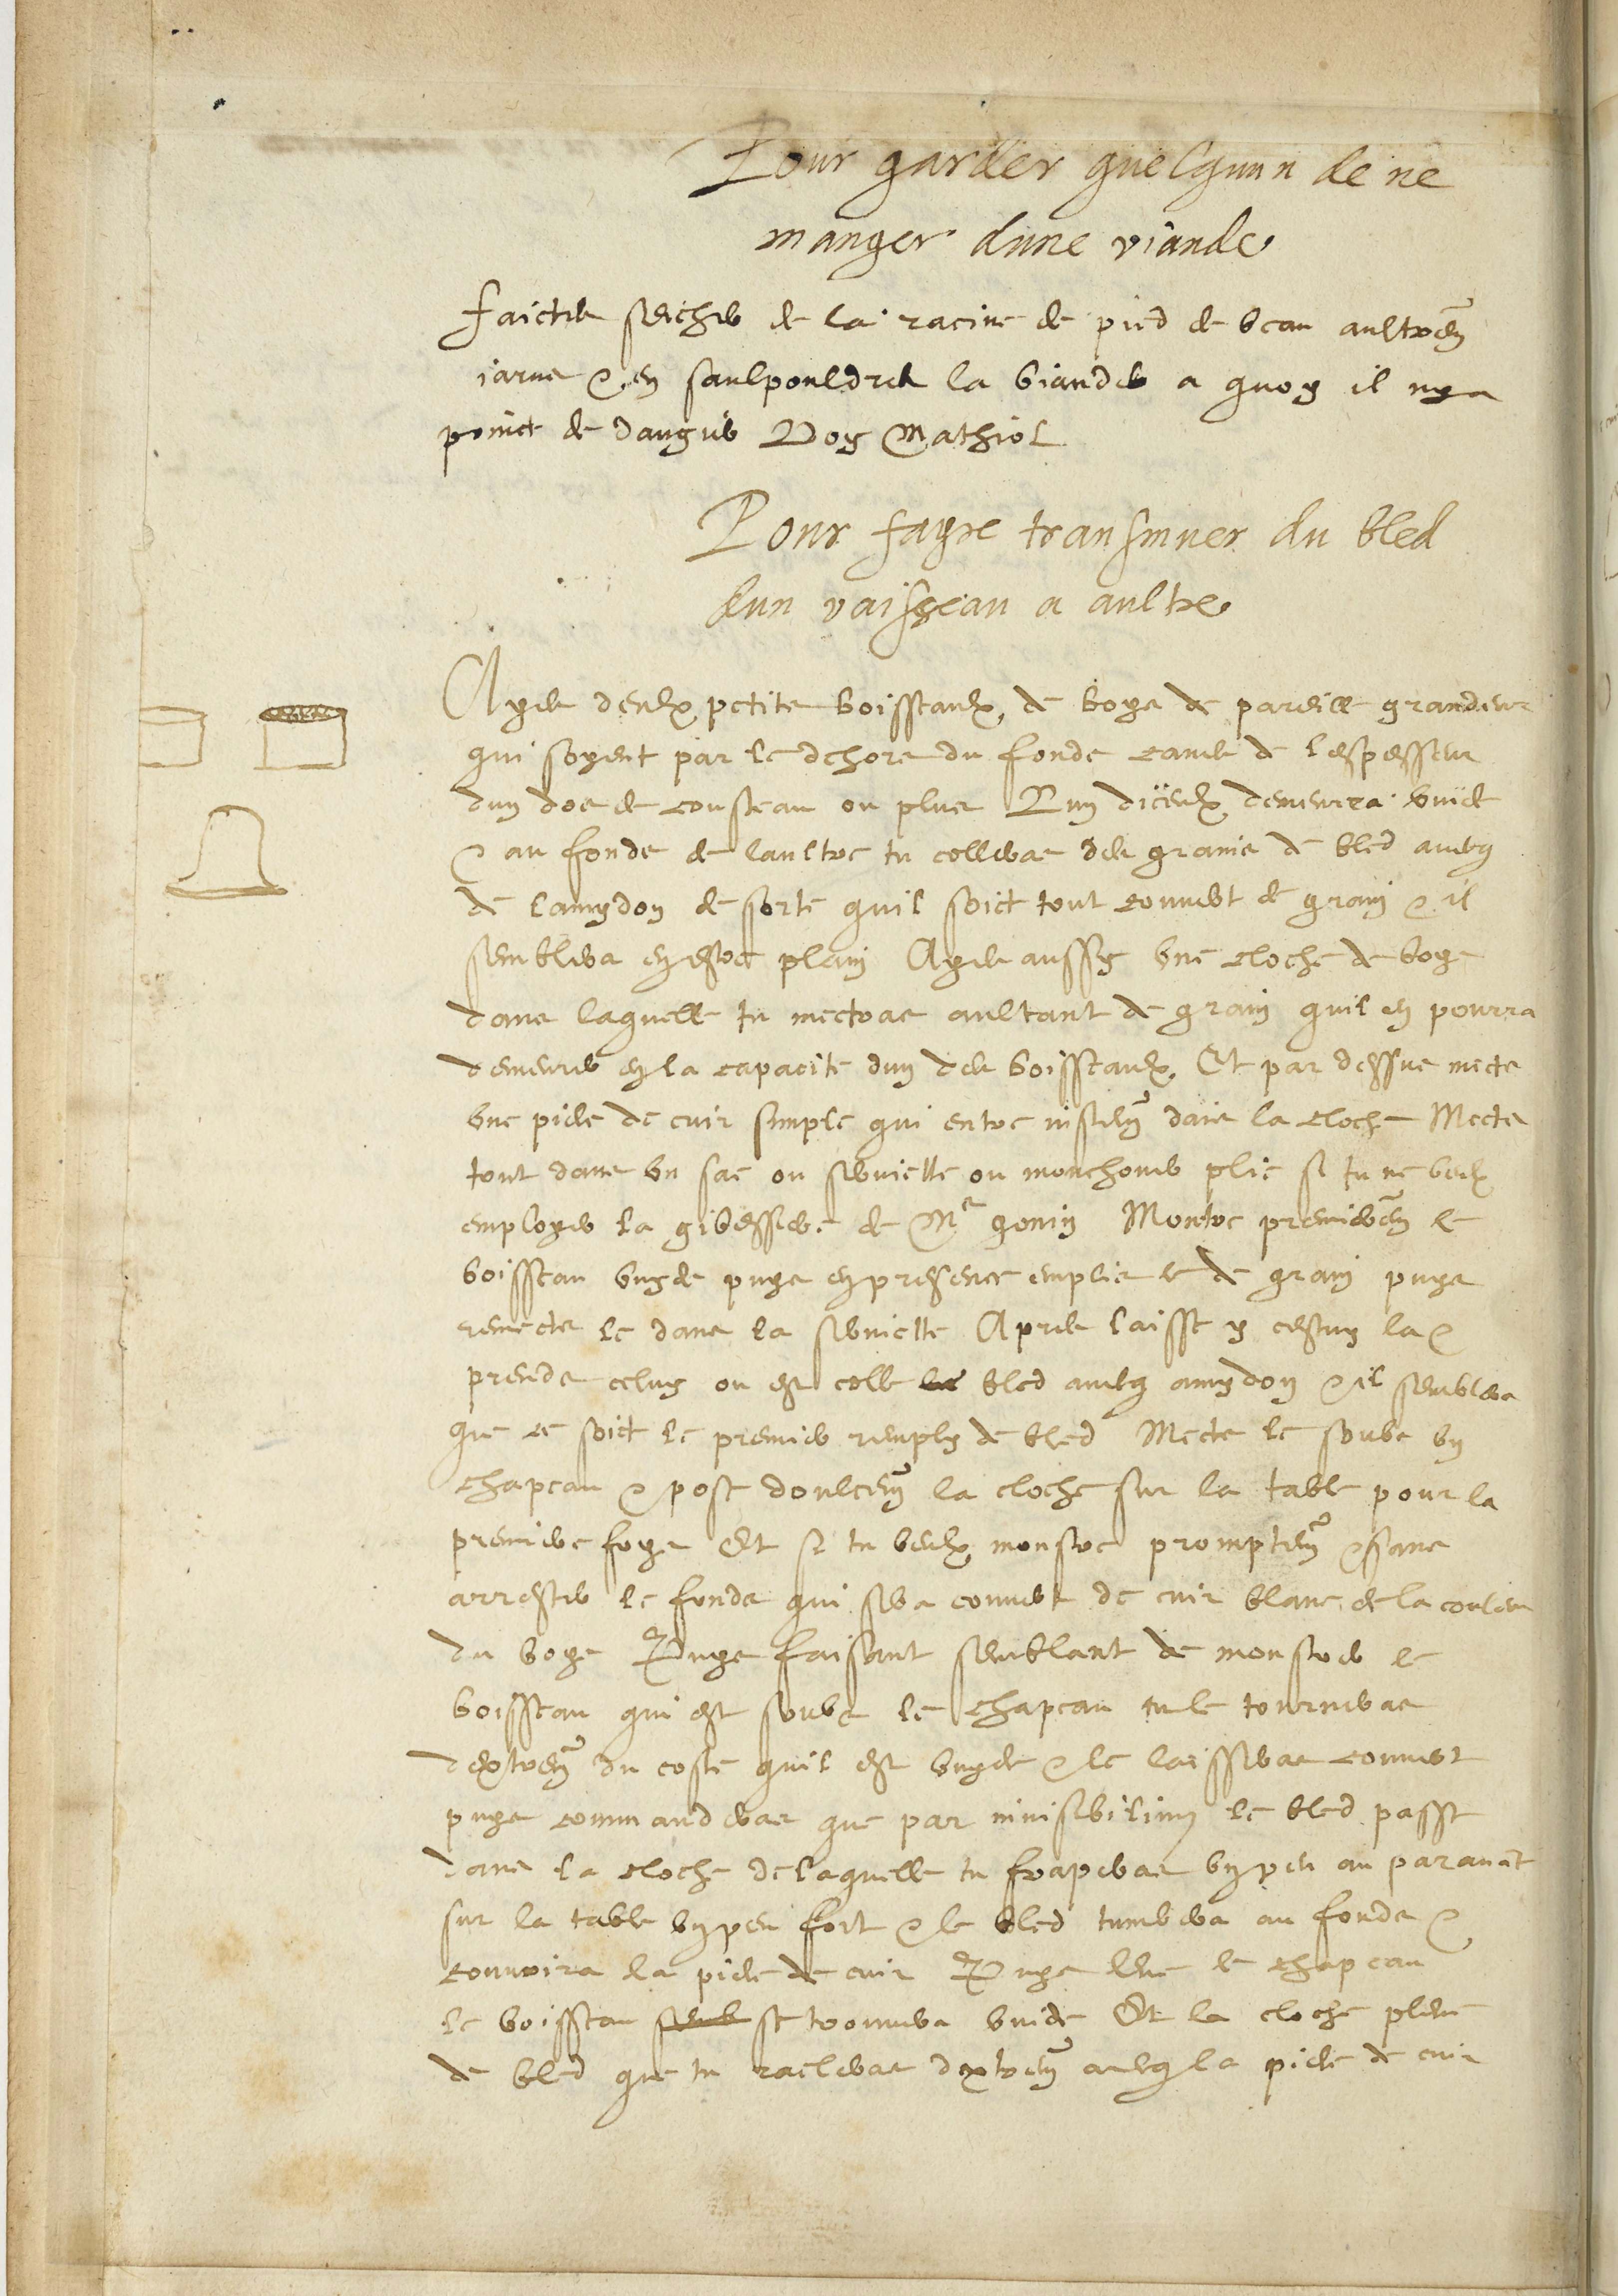 Pour garder quelquun de ne
manger dune viande
Faictes seicher de la racine de pied de veau aultrem̃
iarus & en saulpouldrés la viande a quoy il ny a
poinct de danger Voy Mathiol
Pour fayre transmuer du bled
dun vaisseau a aultre
Ayes deulx petits boisseaulx de boys de pareille grandeur
qui soyent par le dehors du fonds caves de lespesseur
dun dos de cousteau ou plus Lun diceulx demeurera vuide
& au fonds de laultre tu colleras des grains de bled avecq
de lamydon de sorte quil soict tout couvert de grain & il
semblera en estre plain Ayes aussy une cloche de boys
dans laquelle tu mectras aultant de grain quil en pourra
demeurer en la capacite dun des boisseaulx Et par dessus mects
une piece de cuir simple qui entre justem̃ dans la cloche Mects
tout dans un sac ou serviette ou mouchouer plie si tu ne veulx
employer la gibessiere de Mͬ gonin Monstre premierem̃ le
boisseau vuyde puys en presence emplis le de grain puys
remects le dans la serviette Apres laisse y cestuy la &
prends celuy ou est colle bled avecq amydon & il semblera
que ce soict le premier remply de bled Mects le soubs un
chapeau & pose doulcem̃ la cloche sur la table pour la
premiere foys Et si tu veulx monstre promptem̃ & sans
arrester le fonds qui sera couvert de cuir blanc de la couleur
du boys Puys faisant semblant de monstrer le
boisseau qui est soubs le chapeau tu le tourneras
dextrem̃ du coste quil est vuyde & le laisseras couvert
puys commanderas que par invisibilium le bled passe
dans la cloche de laquelle tu fraperas un peu au paravant
sur la table un peu fort & le bled tumbera au fonds &
couvrira la piece de cuir Puys leve le chapeau
le boisseau se trouvera vuide Et la cloche pleine
de bled que tu racleras dextrem̃ avecq la piece de cuir